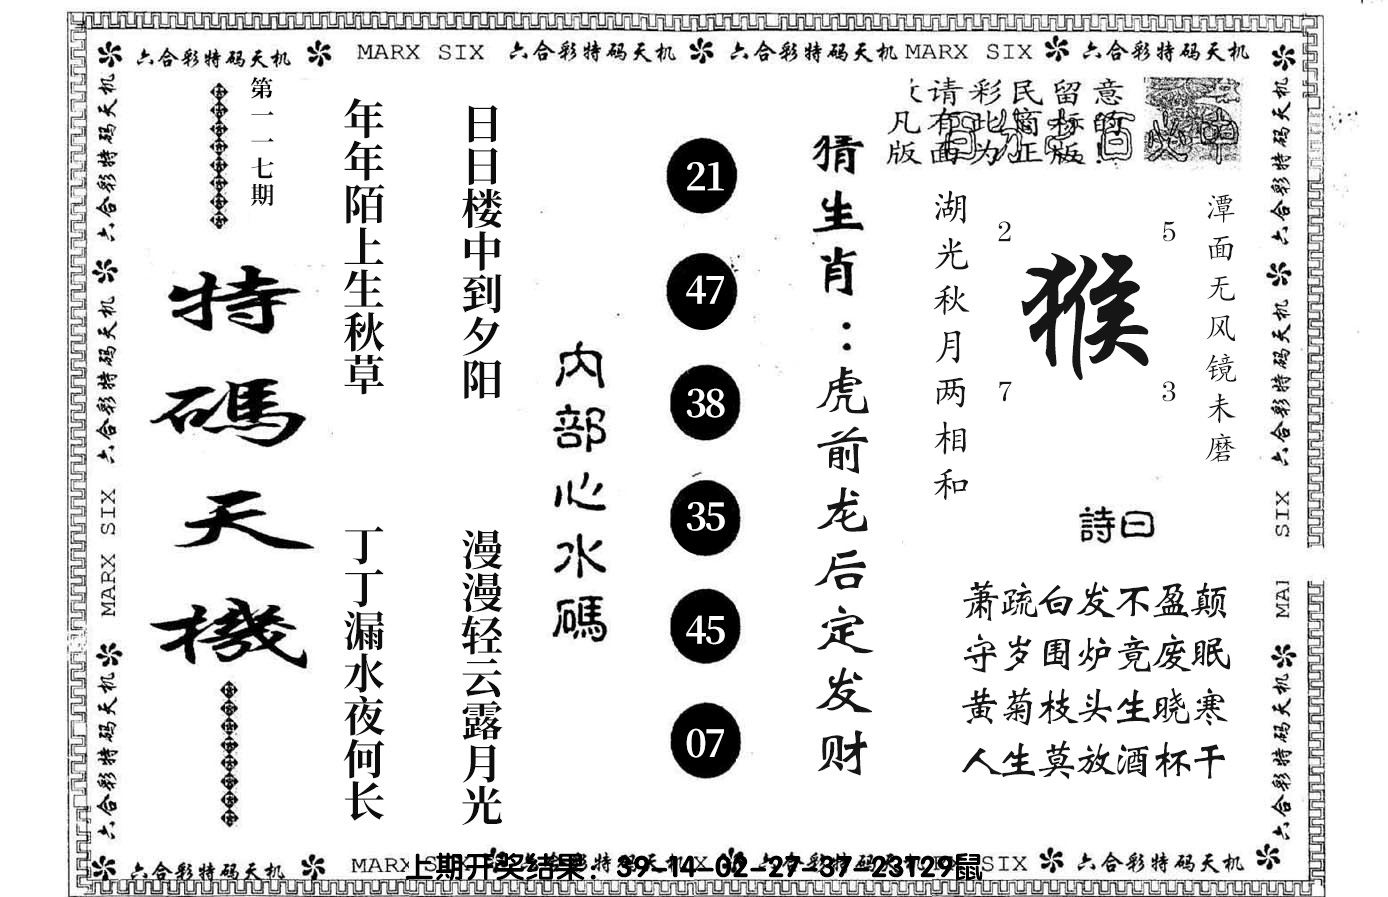 六合彩特码天机 MARX SIX 六合彩特码天机 六合彩特码天机 MARX SIX 六合彩特码天机
第一一七期
特碼天機
年年陌上生秋草
丁丁漏水夜何长
日日楼中到夕阳
漫漫轻云露月光
内部心水碼
21
47
38
35
45
07
猜生肖：虎前龙后定发财
请彩民留意
凡有此商标的
版面为正版!
湖光秋月两相和
潭面无风镜未磨
2
5
猴
7
3
詩曰
萧疏白发不盈颠
守岁围炉竟废眠
黄菊枝头生晓寒
人生莫放酒杯干
六合彩特码天机 六合彩特码天机 MARX SIX 六合彩特码天机
六合彩特码天机 六合彩特码天机 SIX 六合彩特码天机
六合彩特码天机 MARX SIX 六合彩特码天机
上期开奖结果：39-14-02-27-37-23T29鼠